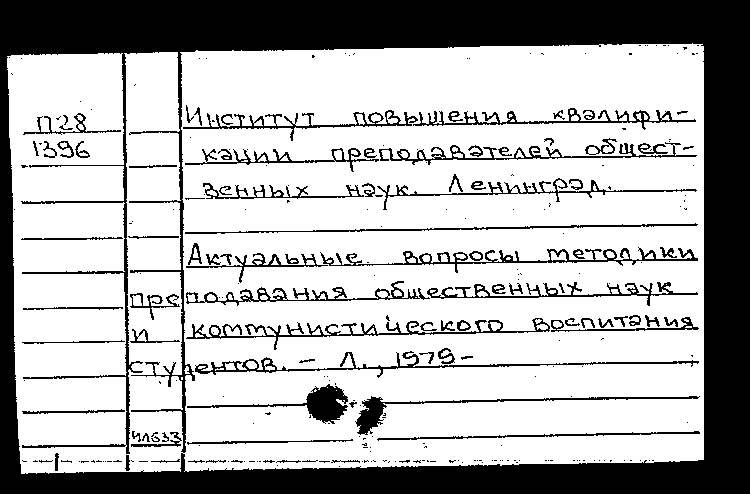 П28
1396
Институт повышения квалифи-
кации преподавателей общест-
венных наук. Ленинград.
Актуальные вопросы методики
преподавания общественных наук
и коммунистического воспитания
студентов. – Л., 1979-